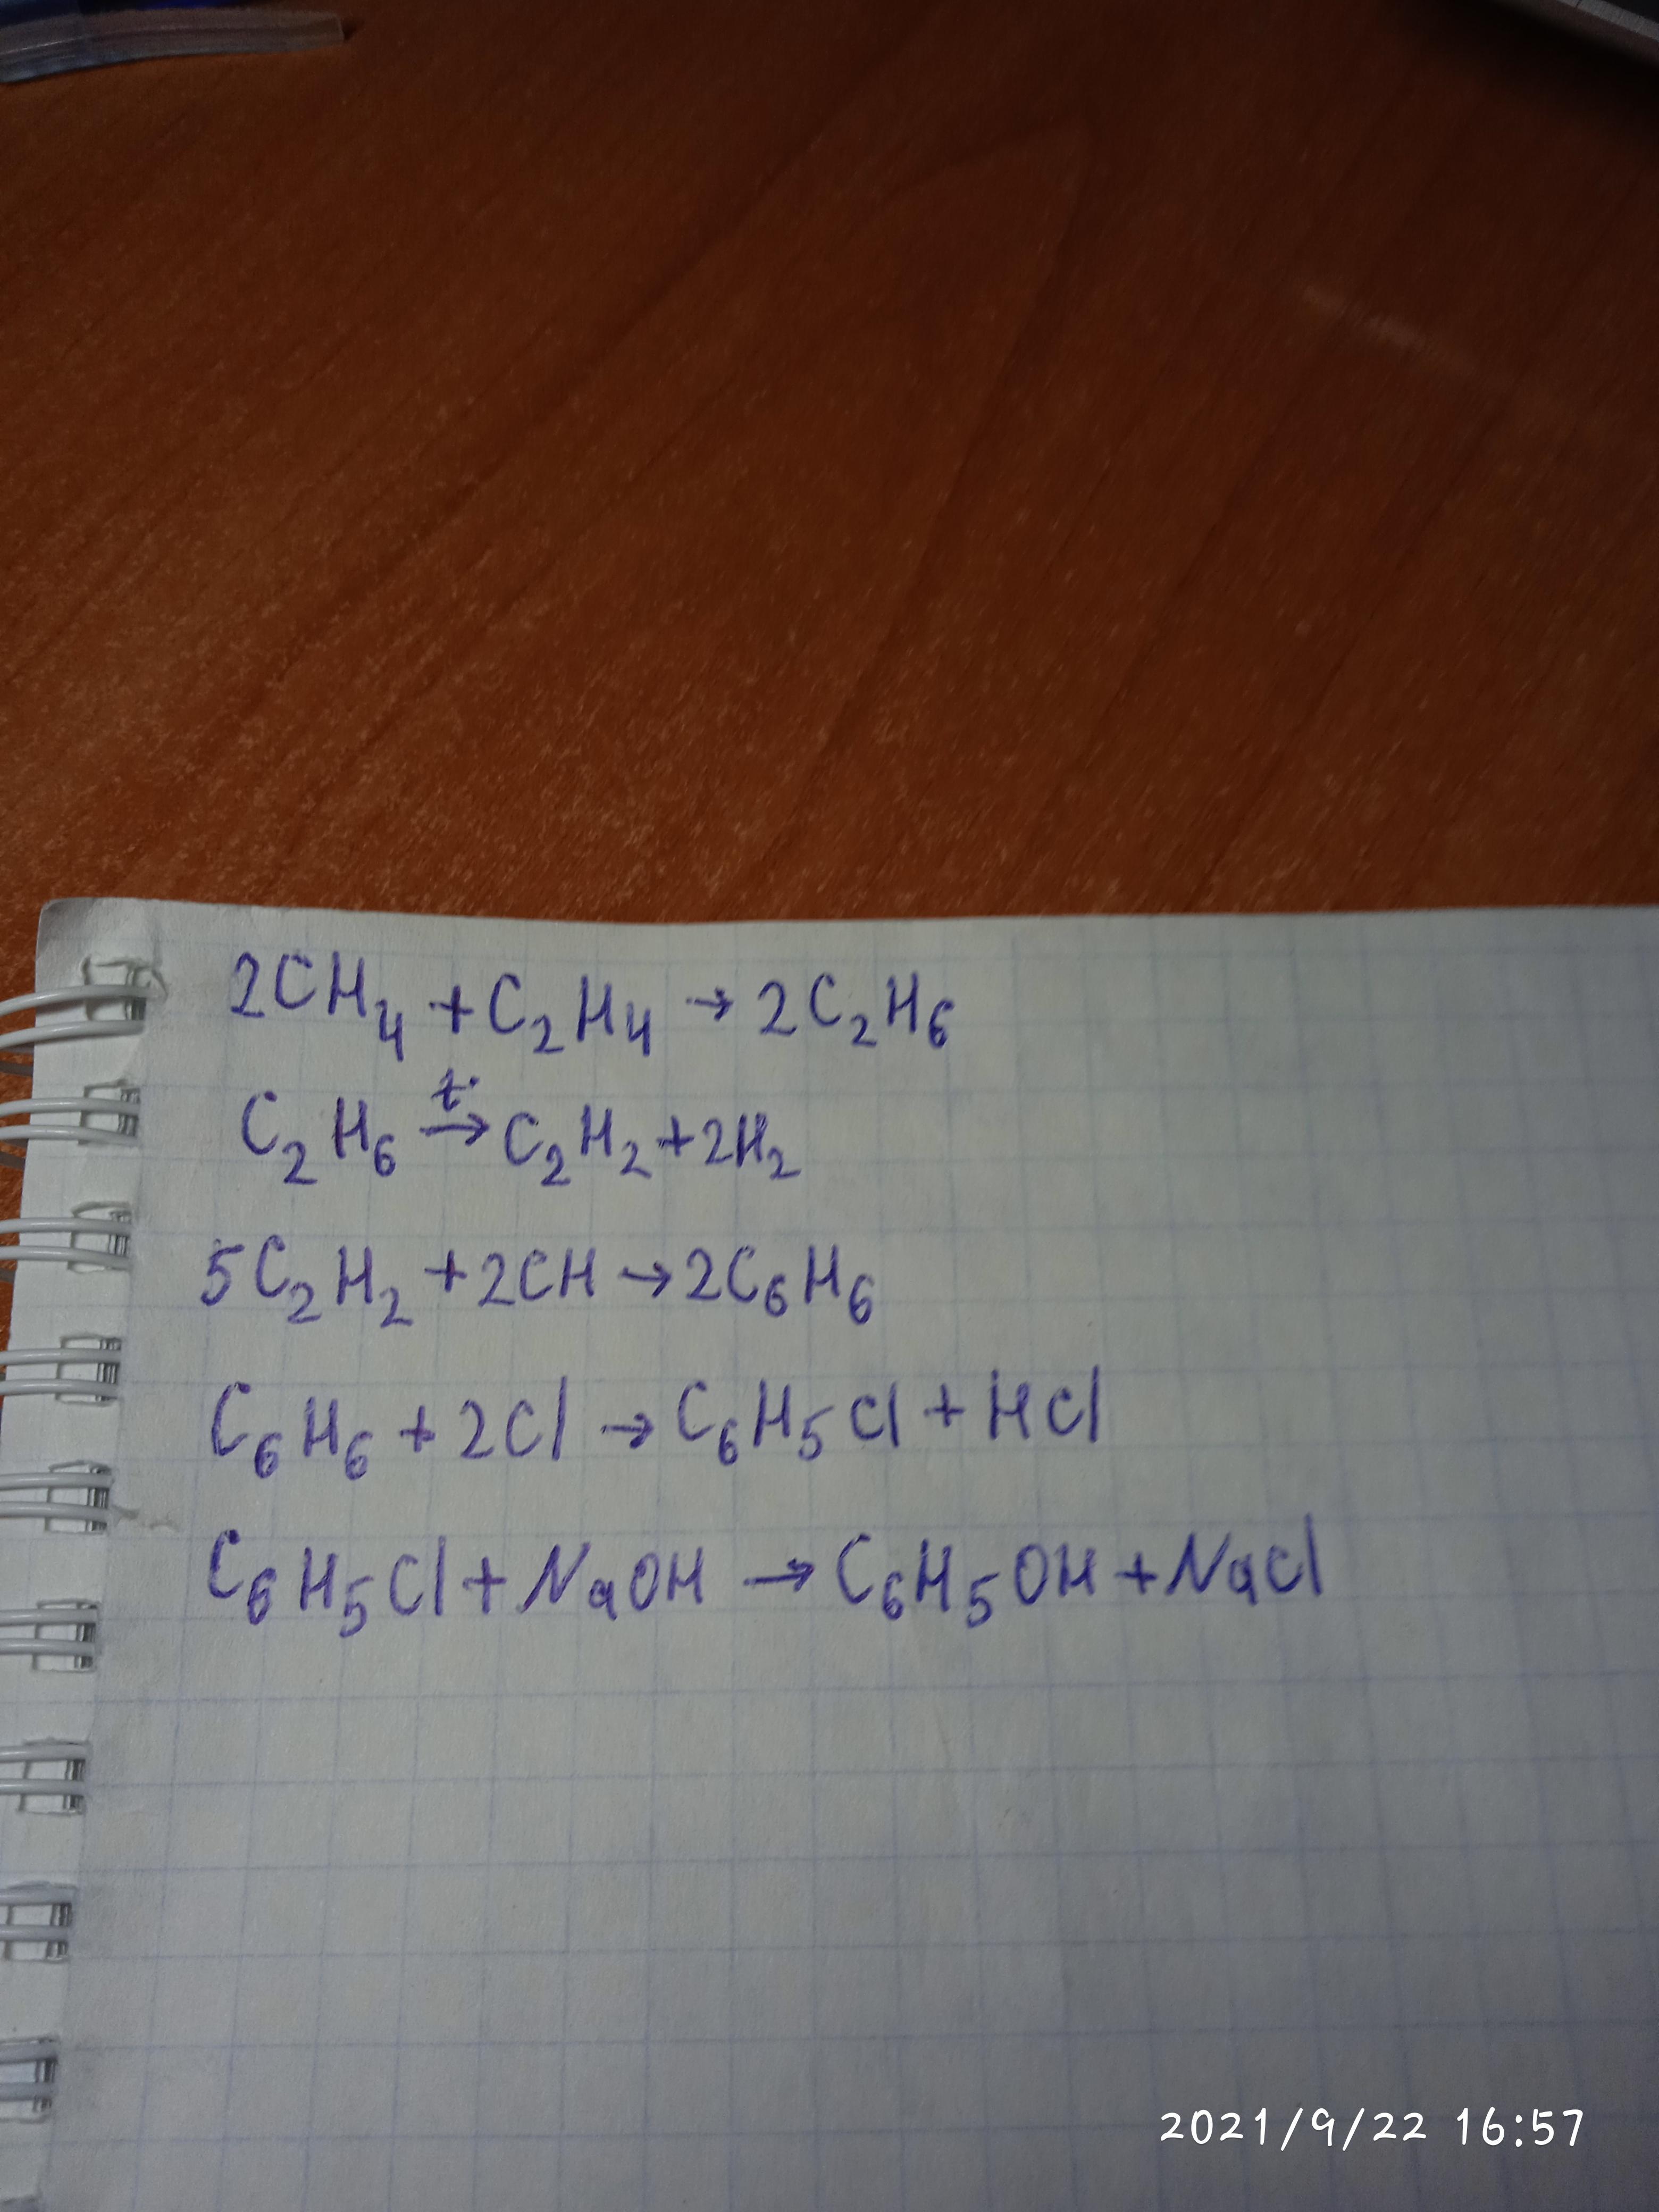 2CH₄ + C₂H₄ → 2C₂H₆
C₂H₆ t° → C₂H₂ + 2H₂
5C₂H₂ + 2CH → 2C₆H₆
C₆H₆ + 2Cl → C₆H₅Cl + HCl
C₆H₅Cl + NaOH → C₆H₅OH + NaCl
2021/9/22 16:57